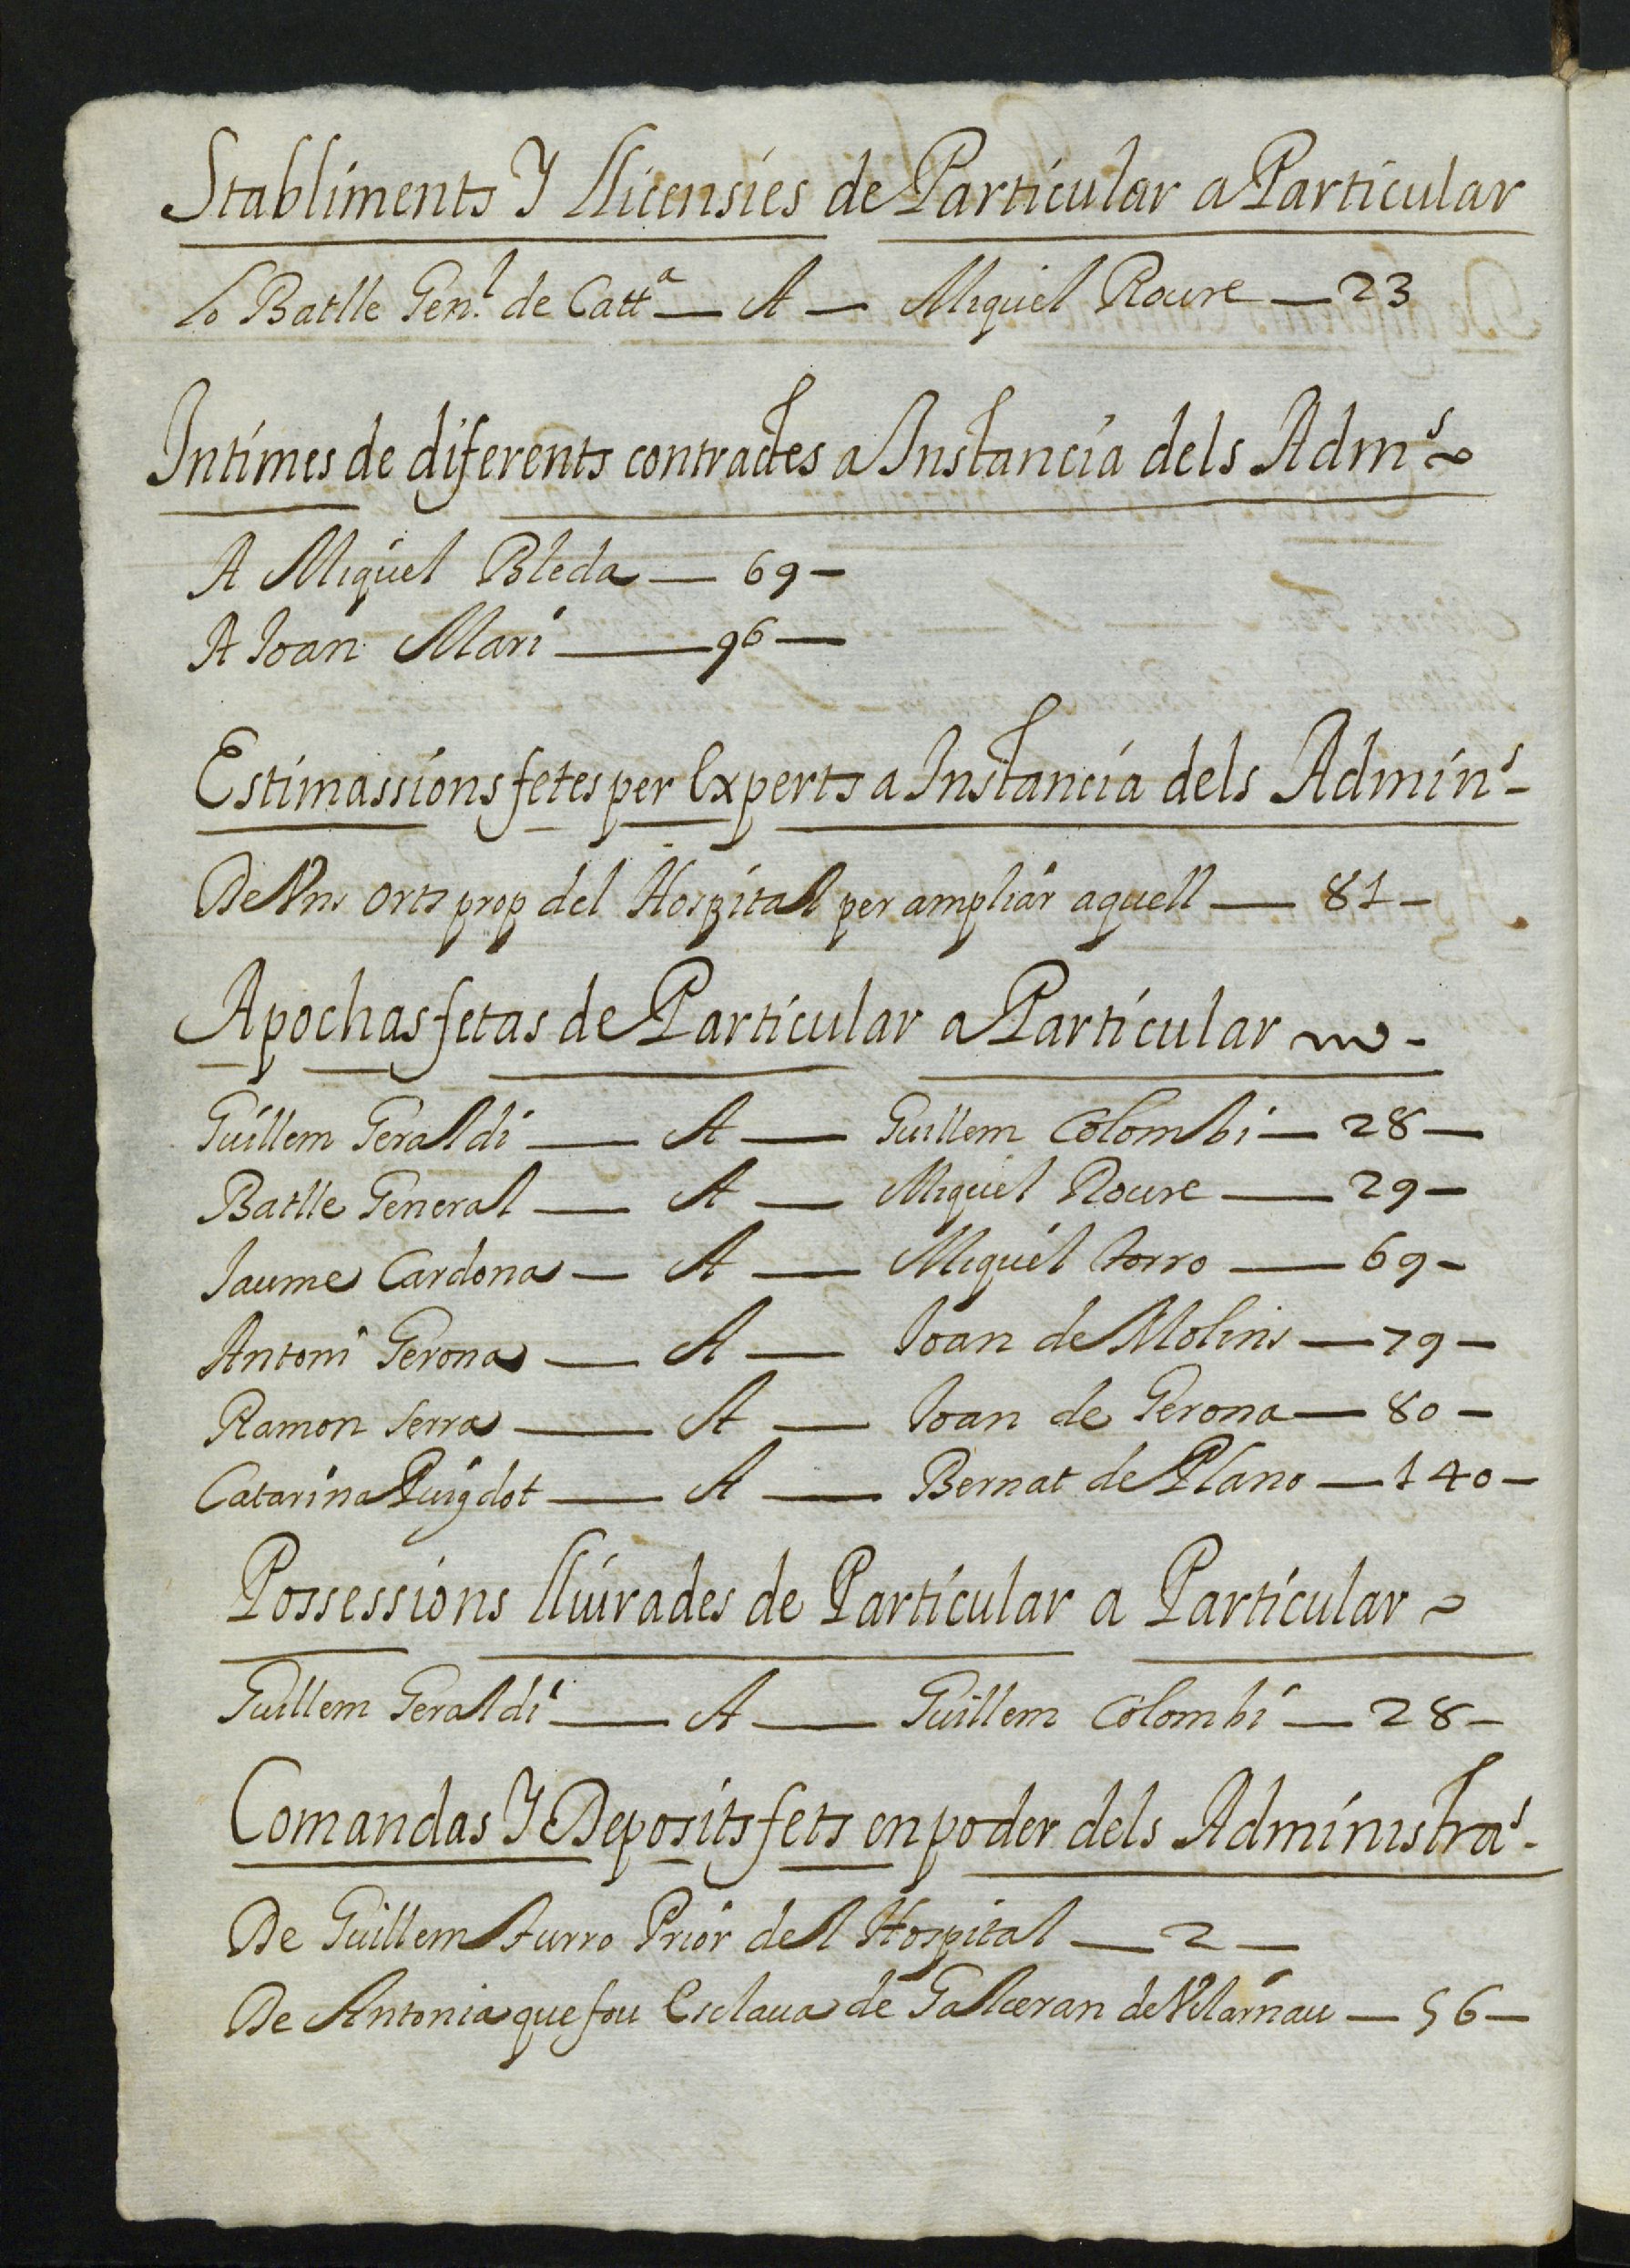 Stabliments Y llicensies de Particular a Particular
Lo Batlle Gen.l de Catt.a — A — Miquel Roure — 23
Intimes de diferents contractes a Instancia dels Adm.s
A Miquel Bleda — 69 —
A Joan Mari — 96 —
Estimassions fetes per Experts a Instancia dels Admin.s —
De Uns orts prop del Hospital per ampliar aquell — 81 —
Apochas fetas de Particular a Particular —
Guillem Geraldi — A — Guillem Colombi — 28 —
Batlle General — A — Miquel Roure — 29 —
Jaume Cardona — A — Miquel Torro — 69 —
Antoni Gerona — A — Joan de Molins — 79 —
Ramon Serra — A — Joan de Gerona — 80 —
Catarina Puigdot — A — Bernat de Plano — 140 —
Possessions lliurades de Particular a Particular
Guillem Geraldi — A — Guillem Colombi — 28 —
Comandas Y Deposits fets en poder dels Administra.s —
De Guillem Prior del Hospital — 2 —
De Antonia que fou Esclaua de Galceran de Vilarnau — 56 —